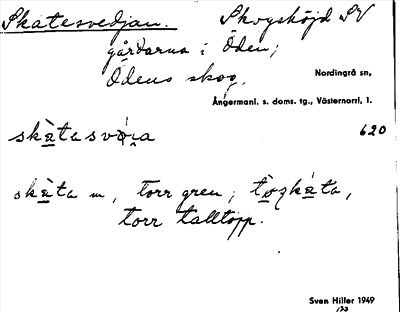 Skatesvedjan. Skogshöjd SV
gårdarna i Öden;
Ödens skog.
Nordingrå sn,
Ångermanl. s. doms. tg., Västernorrl. l.
skàtasvò̭i̭a 620
skàta m, torr gren; tò̱rkàta,
torr talltopp.
Sven Hiller 1949